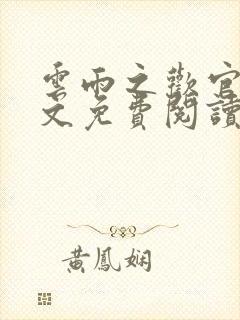 雲雨之歡官
文免費閱讀
黃鳳嫻